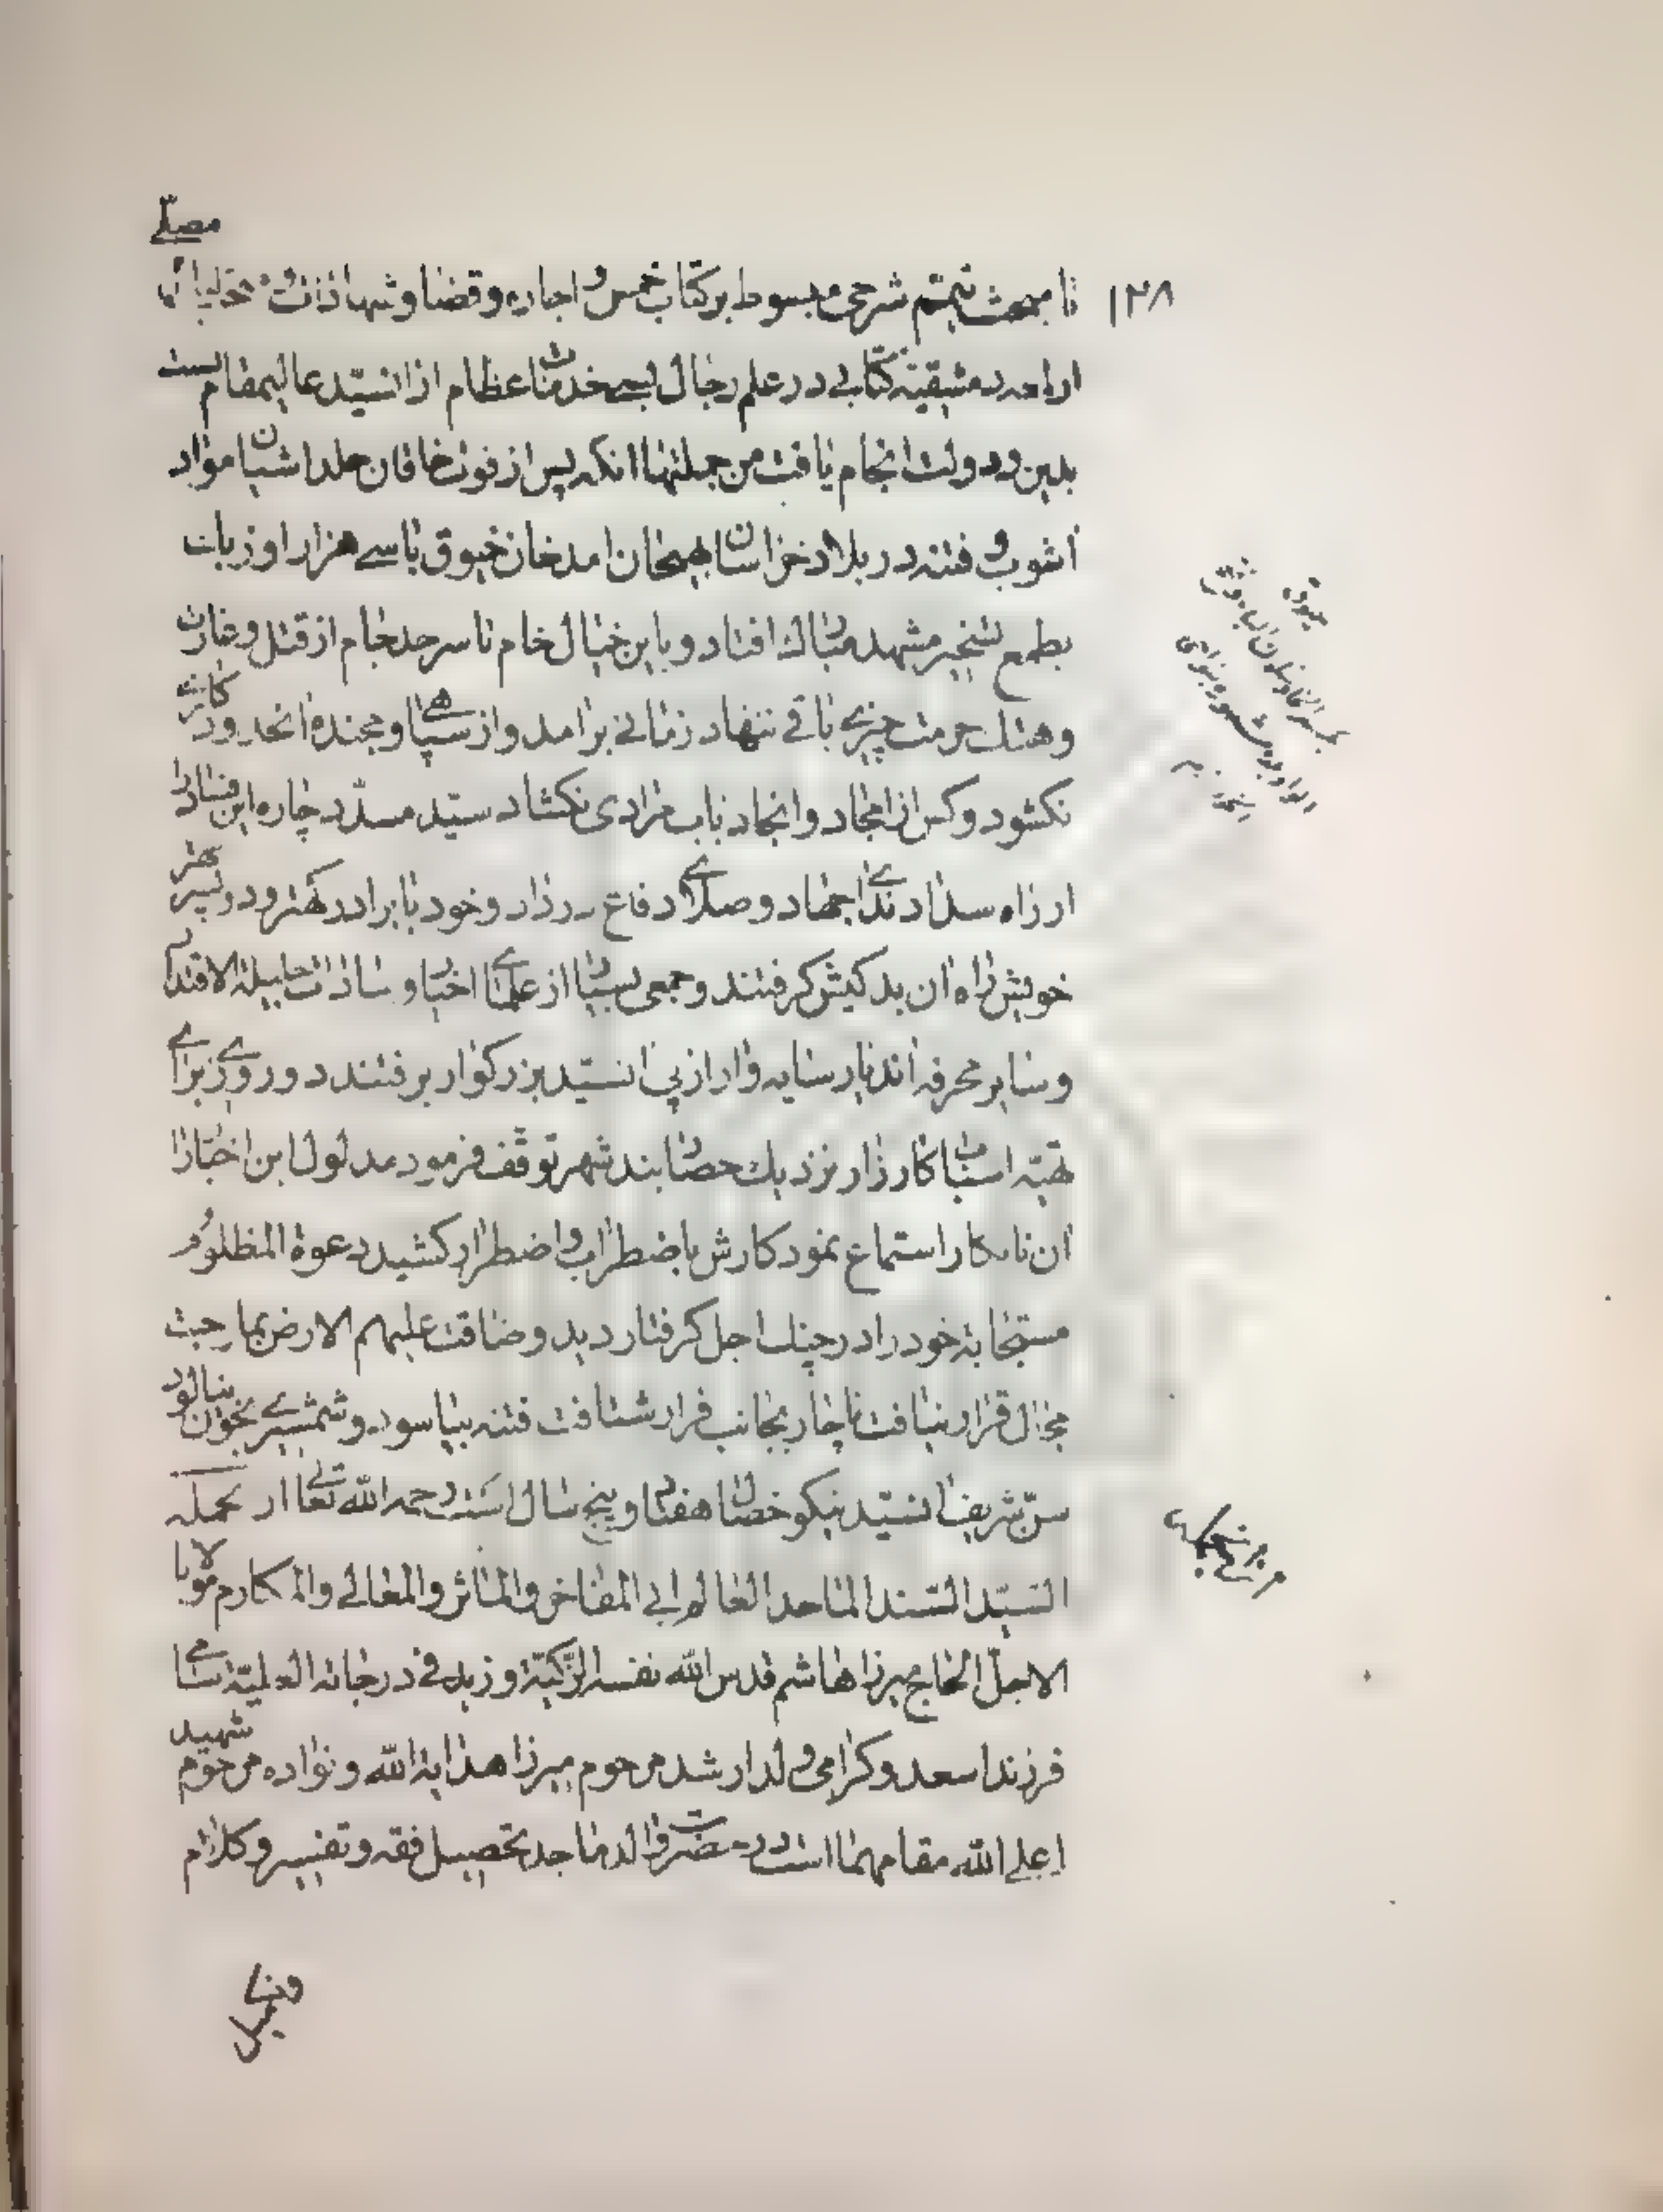 مصلّی
۱۲۸
تا مبحث تیمّم شرحی مبسوط بر کتاب خمس و اجاره و قضا و شهادات و
کتابی در علم رجال بسی خدمات عظام از ان سیّد عالیمقام
بدین و دولت انجام یافت من جملتها انکه پس از فوت خاقان خلد اشیان مواد
اشوب و فتنه در بلاد خراسان بهیجان امد خان خیوق با سی هزار اوزبک
بطمع تسخیر مشهد مبارک افتاد و باین خیال خام تا سر حد جام از قتل و غارت
و هتک حرمت چیزی باقی ننهاد زمانی برامد و از سپاهی و جنده انحدود کاری
نکشود و کس از امجاد و انجاد باب مرادی نکشاد سیّد مسدّد چاره این فساد را
از راه سداد ندای جهاد و صلای دفاع در داد و خود با برادر کهتر و در پسر بهتر
خویش راه ان بد کیش کرفتند و جمعی بسیار از علمای اخیار و سادات جلیلة الاقتدار
و سایر محرفه اندیار سایه وار از پی ان سیّد بزرکوار برفتند دو روزی برای
تهیّه اسباب کارزار نزدیک حصار بند شهر توقّف فرمود مدلول این اخبار را
ان نابکار استماع نمود کارش باضطراب و اضطرار کشید دعوة المظلوم
مستجابة خود را در چنک اجل کرفتار دید و ضاقت علیهم الارض بما رحبت
مجال قرار نیافت ناچار بجانب فرار شتافت فتنه بیاسود و شمشیری بخون نیالود
سنّ شریف ان سیّد نیکو خصال هفتاد و پنج سال است رحمه الله تعالی از جمله
السیّد السّند الماجد العالم ابی المفاخر و الماثر و المعالی و المکارم مولانا
الاجلّ الحاج میرزا هاشم قدس الله نفسه الزّکیّة و زید فی درجاته العلیّة سامی
فرزند اسعد و کرامی ولد ارشد مرحوم میرزا هدایة الله و نواده مرحوم شهید
اعلی الله مقامهما است در حضرت والد ماجد تحصیل فقه و تفسیر و کلام